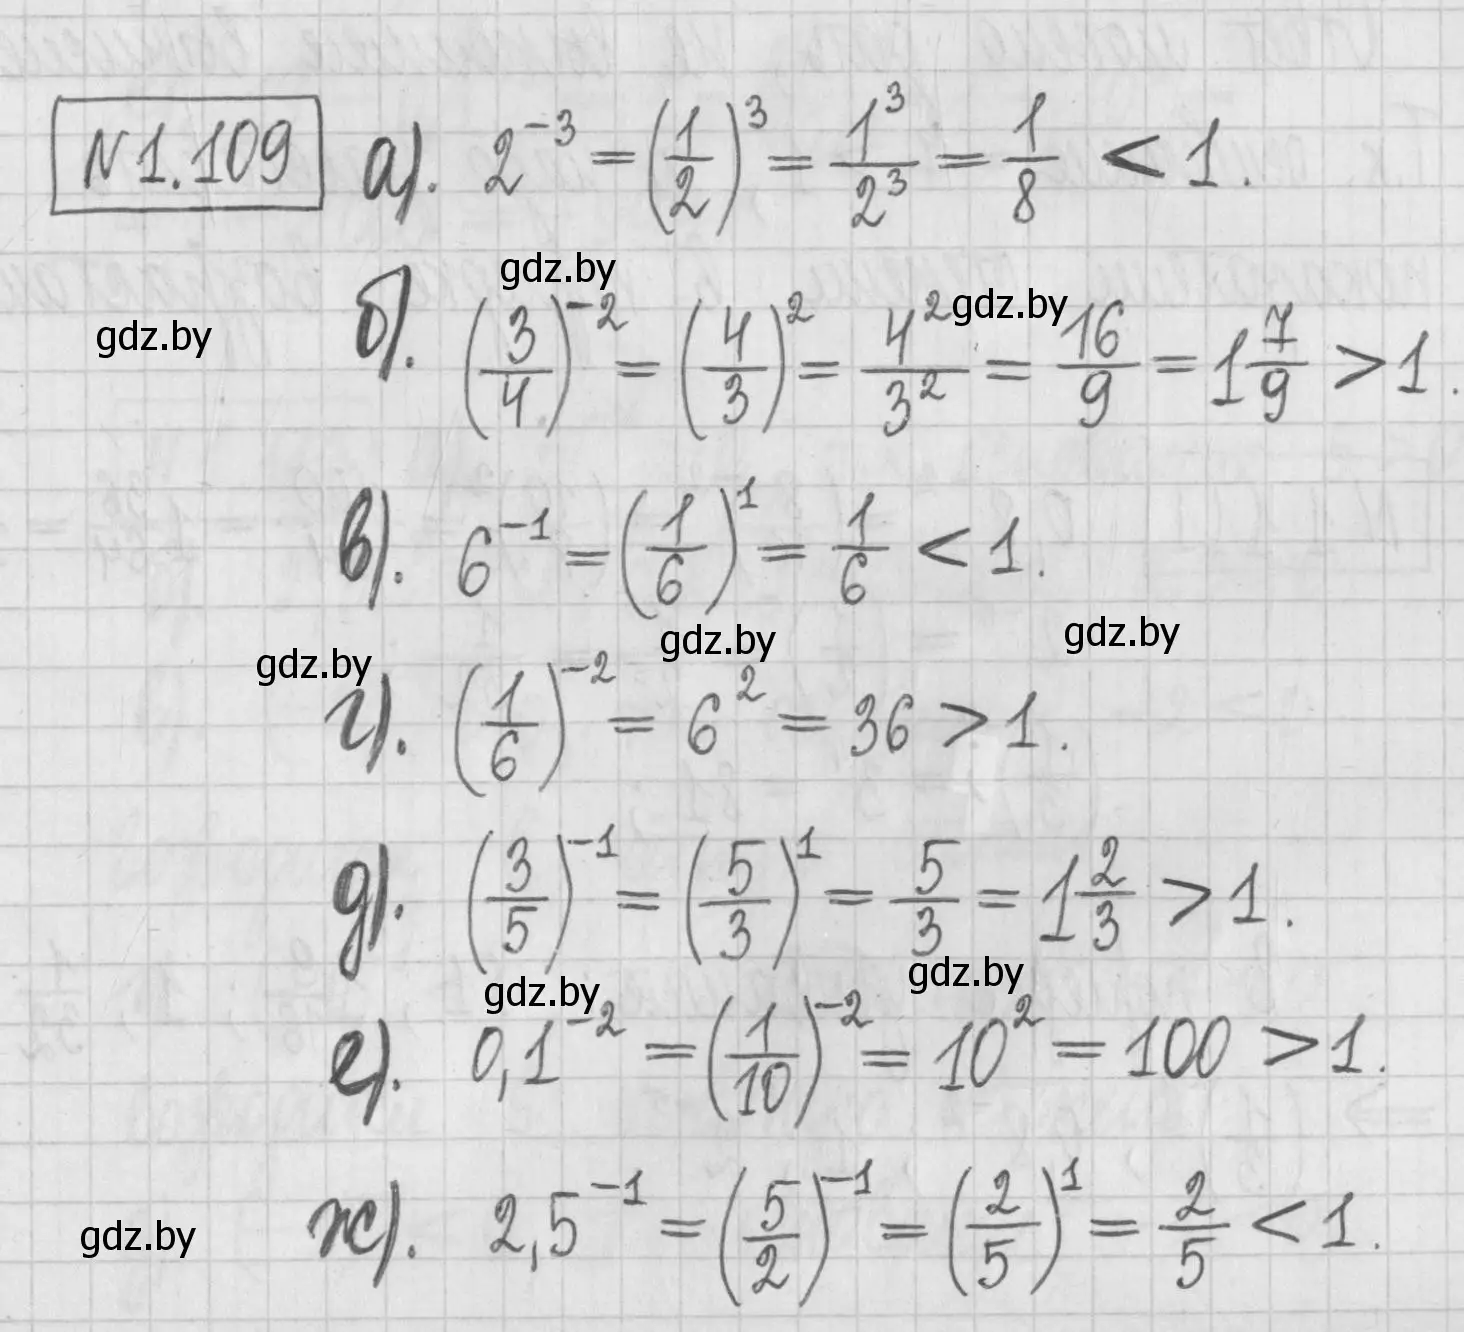 N 1.109 а). 2^{-3} = (1/2)^3 = 1^3/2^3 = 1/8 < 1.
gdz.by
gdz.by
gdz.by
б). (3/4)^{-2} = (4/3)^2 = 4^2/3^2 = 16/9 = 1 7/9 > 1.
в). 6^{-1} = (1/6)^1 = 1/6 < 1.
gdz.by
gdz.by
gdz.by
г). (1/6)^{-2} = 6^2 = 36 > 1.
д). (3/5)^{-1} = (5/3)^1 = 5/3 = 1 2/3 > 1.
gdz.by
gdz.by
е). 0,1^{-2} = (1/10)^{-2} = 10^2 = 100 > 1.
ж). 2,5^{-1} = (5/2)^{-1} = (2/5)^1 = 2/5 < 1.
gdz.by